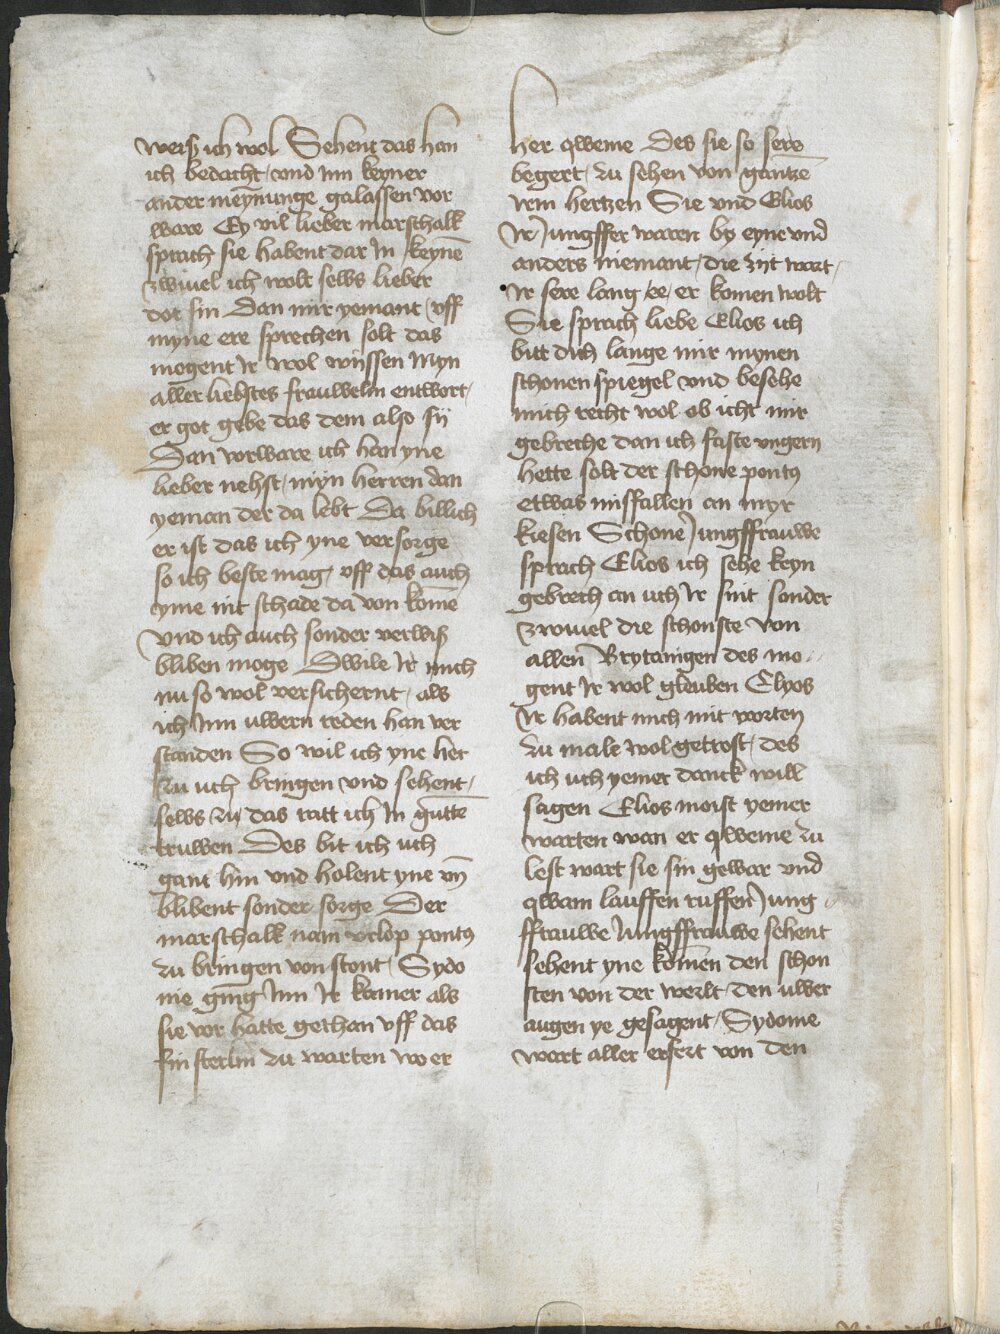 weiß ich wol Sehent das han
ich bedacht / vnd Inn keyner
ander meỹnunge gelassen vor
ware Ey vil lieber marschalk
sprach sie habent dar In keynē
zwiuel ich wolt selbs lieber
dot sin Dan mir yemant vff
myne ere sprechen solt das
mogent Ir wol wijssen Myn
aller liebstes frauwelin entwort /
er got gebe das dem also sij
Dan vorware ich han yne
lieber nehst / mijn herren dan
yeman der da lebt Da billich
er ist das ich yne versorge
so ich beste mag / vff das auch
yme nit schade da von komē
Vnd ich auch sonder verwiß
bliben moge Dwile Ir mich
nu so wol versichernt / als
ich Inn uwern reden han ver
standen So wil ich yne her
zu uch bringen vnd sehent /
selbs zu das ratt ich In guttē
truwen Des bit ich uch
gant hin vnd holent yne vñ
blibent sonder sorge Der
marschalk nam vrlop pontus
zu bringen von stont / Sydo
nie ging Inn Ir kamer als
sie vor hatte gethan vff das
finsterlin zu warten wo er
her qweme Des sie so sere
begert / zu sehen von gantzē
Irm hertzen Sie vnd Elios
Ir Jungffer waren by eyne vnd
anders niemant / die zijt wart /
Ir sere lang / ee / er komen wolt
Sie sprach liebe Elios ich
bitt dich lange mir mynen
schonen spiegel vnd besehe
mich recht wol ob icht mir
gebreche dan ich faste vngern
hette solt der schone pontus
etwas missfallen an myr
kiesen Schone Jungffrauwe
sprach Elios ich sehe keyn
gebrech an uch Ir sint sonder
zwiuel die schonste von
allen Brytanigen des mo
gent Ir wol gleuben Elyos
Ir habent mich mit worten
zu male wol getrost / des
ich uch yemer danck will
sagen Elios moist yemer
warten wan er qweme zu
lest wart sie sin gewar vnd
qwam lauffen ruffen Jung
ffrauwe Jungffrauwe sehent
sehent yne komen den schon
sten von der werlt / den uwer
augen ye gesagent / Sydonie
wart aller erfert von den